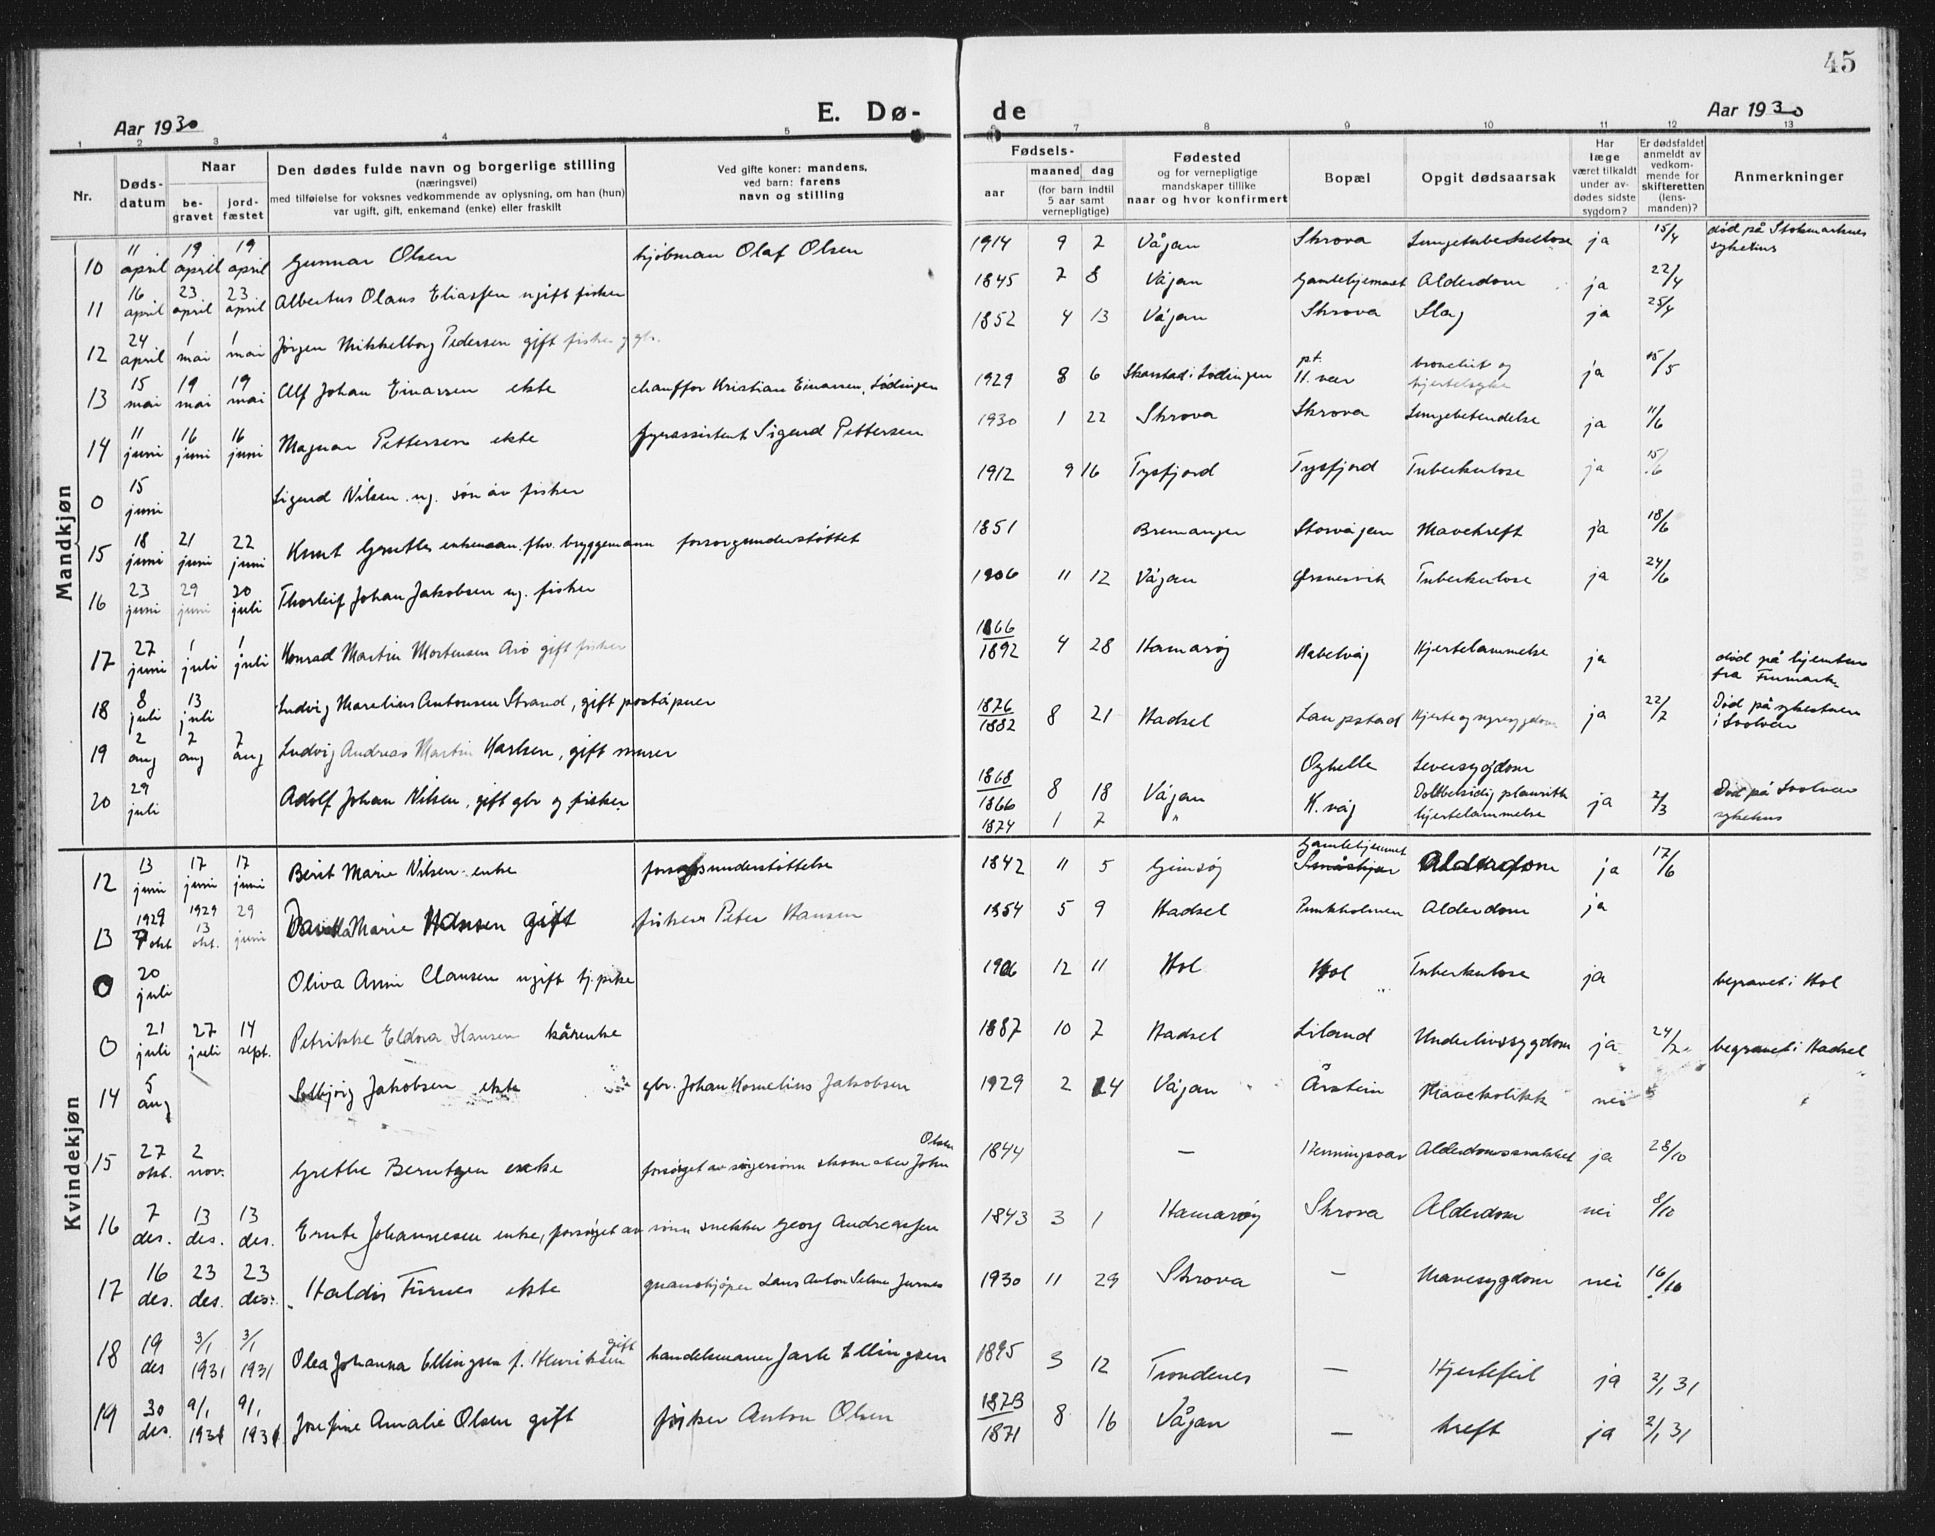 45
Aar 1930
E. Dø-
de
Aar 1930
1 2 3 4 5 6 7 8 9 10 11 12 13
Nr.
Døds-
datum
Naar
be-
gravet
jord-
fæstet
Den dødes fulde navn og borgerlige stilling
(næringsvei)
med tilføielse for voksnes vedkommende av oplysning, om han (hun)
var ugift, gift, enkemand (enke) eller fraskilt
Ved gifte koner: mandens,
ved barn: farens
navn og stilling
Fødsels-
aar
maaned dag
(for barn indtil
5 aar samt
vernepligtige)
Fødested
og for vernepligtige
mandskaper tillike
naar og hvor konfirmert
Bopæl
Opgit dødsaarsak
Har
læge
været tilkaldt
under av-
dødes sidste
sygdom?
Er dødsfaldet
anmeldt av
vedkom-
mende for
skifteretten
(lens-
manden)?
Anmerkninger
Mandkjøn
10 11 april 19 april 19 april Gunnar Olsen kjøbman Olaf Olsen 1914 9 2 Vågan Skrova Lungetuberkellose ja 15/4 død på Stokmarknes sykehus
11 16 april 23 april 23 april Albertus Olaus Eliassen ugift fisker 1845 7 8 Vågan Gamlehjemmet Alderdom ja 22/4
12 24 april 1 mai 1 mai Jørgen Mikkelborg Pedersen gift fisker og gbr. 1852 4 13 Vågan Skrova Slag ja 25/4
13 15 mai 19 mai 19 mai Alf Johan Einarsen ekte chauffør Kristian Einarsen, Lødingen 1929 8 6 Skarstad i Lødingen p.t. H. vær bronchit og hjertesyke ja 15/5
14 11 juni 16 juni 16 juni Magnar Pettersen ekte fyrassistent Sigurd Pettersen 1930 1 22 Skrova Skrova Lungebetendelse ja 11/6
0 15 juni Sigurd Nilsen ug. søn av fisker 1912 9 16 Tysfjord Tysfjord Tuberkulose ja 15/6
15 18 juni 21 juni 22 juni Knut enkeman fhv. bryggemann forsorgsunderstøttet 1851 Bremanger Storvågan Mavekreft ja 18/6
16 23 juni 29 juni 20 juli Thorleif Johan Jakobsen ug. fisker 1906 11 12 Vågan Ørsnesvik Tuberkulose ja 24/6
17 27 juni 1 juli 1 juli Konrad Martin Mortensen Arø gift fisker 1866 1892 4 28 Hamarøy Kabelvåg Hjertelammelse ja død på hjemturen fra Finmark
18 8 juli 13 juli Ludvig Marelius Antonsen Strand, gift poståpner 1876 1882 8 21 Hadsel Laupstad Hjerte og nyresygdom ja 22/7 Død på sykestuen i Svolvær
19 2 aug 7 aug 7 aug Ludvig Andreas Martin Karlsen, gift murer 1868 1866 8 18 Vågan Ørhella Leversygdom
20 29 juli Adolf Johan Nilsen, gift gbr og fisker 1874 1 7 " K. våg Dobbelsidig pleuritt hjertelammelse ja 2/3 Død på Svolvær sykehus
Kvindekjøn
12 13 juni 17 juni 17 juni Berit Marie Nilsen enke forsorgsunderstøttelse 1842 11 5 Gimsøy Gamlehjemmet Alderdom ja 17/6
13 1929 7 okt 1929 13 okt. 29 juni Marie Hansen gift fisker Peter Hansen 1854 5 9 Hadsel Alderdom ja
0 20 juli Oliva Anni Clausen ugift tj. pike 1906 12 11 Hol Hol Tuberkulose ja begravet i Hol
0 21 juli 27 juli 14 sept. Petrikke Eldora Hansen kårenke 1887 10 7 Hadsel Liland Underlivssygdom ja 24/7 begravet i Hadsel
14 5 aug Solbjørg Jakobsen ekte gbr. Johan Kornelius Jakobsen 1929 2 24 Vågan Årstein Mavekolikk nei
15 27 okt. 2 nov. Grethe Berntzen enke forsørget av John Olsen 1844 — Henningsvær Alderdomssvakhet ja 28/10
16 7 des. 13 des. 13 des. Ernte Johannesen enke, forsørget av sønn snekker Georg Andreassen 1843 3 1 Hamarøy Skrova Alderdom nei 8/10
17 16 des. 23 des. 23 des. Haldis Furnes ekte guanokjøper Lars Anton Selmer Furnes 1930 11 29 Skrova — Mavesygdom nei 16/10
18 19 des 3/1 1931 3/1 1931 Olea Johanna Ellingsen f. Henriksen gift handelsmann Jarle Ellingsen 1895 3 12 Trondenes — Hjertefeil ja 2/1 31
19 30 des. 9/1 1931 9/1 1931 Josefine Amalie Olsen gift fisker Anton Olsen 1873 1871 8 16 Vågan — kreft ja 2/1 31